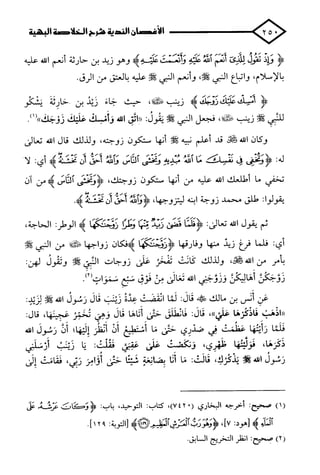 ٢٥٠ الأغصان الندية شرح الخلاصة البهية
﴿وَإِذْ تَقُولُ لِلَّذِي أَنْعَمَ اللَّهُ عَلَيْهِ وَأَنْعَمْتَ عَلَيْهِ﴾ وهو زيد بن حارثة أنعم الله عليه
بالإسلام، واتباع النبي ﷺ، وأنعم النبي ﷺ عليه بالعتق من الرق.
﴿أَمْسِكْ عَلَيْكَ زَوْجَكَ﴾ زينب، حيث جَاءَ زَيْدُ بن حَارِثَةَ يَشْكُو
للنَّبِي ﷺ زينب، فجعل النبي ﷺ يَقُولُ: «اتَّقِ اللهَ وَأَمْسِكْ عَلَيْكَ زَوْجَكَ»(١).
وكان الله قد أعلم نبيه ﷺ أنها ستكون زوجته، ولذلك قال الله تعالى
له: ﴿وَتُخْفِي فِي نَفْسِكَ مَا اللَّهُ مُبْدِيهِ وَتَخْشَى النَّاسَ وَاللَّهُ أَحَقُّ أَنْ تَخْشَاهُ﴾ أي: لا
تخفي ما أطلعك الله عليه من أنها ستكون زوجتك، ﴿وَتَخْشَى النَّاسَ﴾ من أن
يقولوا: طلق محمد زوجة ابنه ليتزوجها، ﴿وَاللَّهُ أَحَقُّ أَنْ تَخْشَاهُ﴾.
ثم يقول الله تعالى: ﴿فَلَمَّا قَضَى زَيْدٌ مِنْهَا وَطَرًا زَوَّجْنَاكَهَا﴾ الوطر: الحاجة،
أي: فلما فرغ زيد منها وفارقها ﴿زَوَّجْنَاكَهَا﴾ فكان زواجها من النبي ﷺ
بأمر من الله، ولذلك كَانَتْ تَفْخَرُ عَلَى زوجات النَّبِيِّ ﷺ وتَقُولُ لهن:
زَوَّجَكُنَّ أَهَالِيكُنَّ وَزَوَّجَنِي الله تَعَالَى مِنْ فَوْقِ سَبْعِ سَمَوَاتٍ(٢).
عَنِ أَنَسِ بن مالك قَالَ: لَمَّا انْقَضَتْ عِدَّةُ زَيْنَبَ قَالَ رَسُولُ اللهِ ﷺ لِزَيْدٍ:
«اذْهَبْ فَاذْكُرْهَا عَلَيَّ»، قَالَ: فَانْطَلَقَ حَتَّى أَتَاهَا قَالَ وَهِيَ تُخَمِّرُ عَجِينَهَا، قال:
فَلَمَّا رَأَيْتُهَا عَظُمَتْ فِي صَدْرِي حَتَّى مَا أَسْتَطِيعُ أَنْ أَنْظُرَ إِلَيْهَا، أَنَّ رَسُولَ الله
ذَكَرَهَا، فَوَلَّيْتُهَا ظَهْرِي، وَنَكَصْتُ عَلَى عَقِبِي فَقُلْتُ: يَا زَيْنَبُ أَرْسَلَنِي
رَسُولُ اللهِ ﷺ يَذْكُرُكِ، قَالَتْ: مَا أَنَا بِصَانِعَةٍ شَيْئًا حَتَّى أُوَامِرَ رَبِّي، فَقَامَتْ إِلَى
(١) صحيح: أخرجه البخاري (٧٤٢٠)، كتاب: التوحيد، باب: ﴿وَكَانَ عَرْشُهُ عَلَى
الْمَاءِ﴾ [هود: ٧]، ﴿وَهُوَ رَبُّ الْعَرْشِ الْعَظِيمِ﴾ [التوبة: ١٢٩].
(٢) صحيح: انظر التخريج السابق.